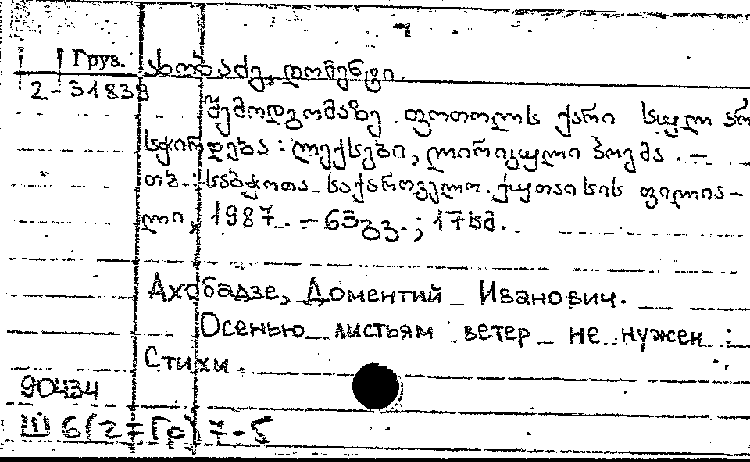 Груз.
2-31838 ახობაძე, დომენტი.
შემოდგომაზე ფოთოლს ქარი სულ არ
სჭირდება : ლექსები, ლირიკული პოემა. –
თბ. : საბჭოთა საქართველო. ქუთაისის ფილია-
ლი, 1987. – 63გვ. ; 17სმ.
Ахобадзе, Доментий Иванович.
Осенью листьям ветер не нужен :
Стихи.
90434
Ш6(2=Гр)7-5